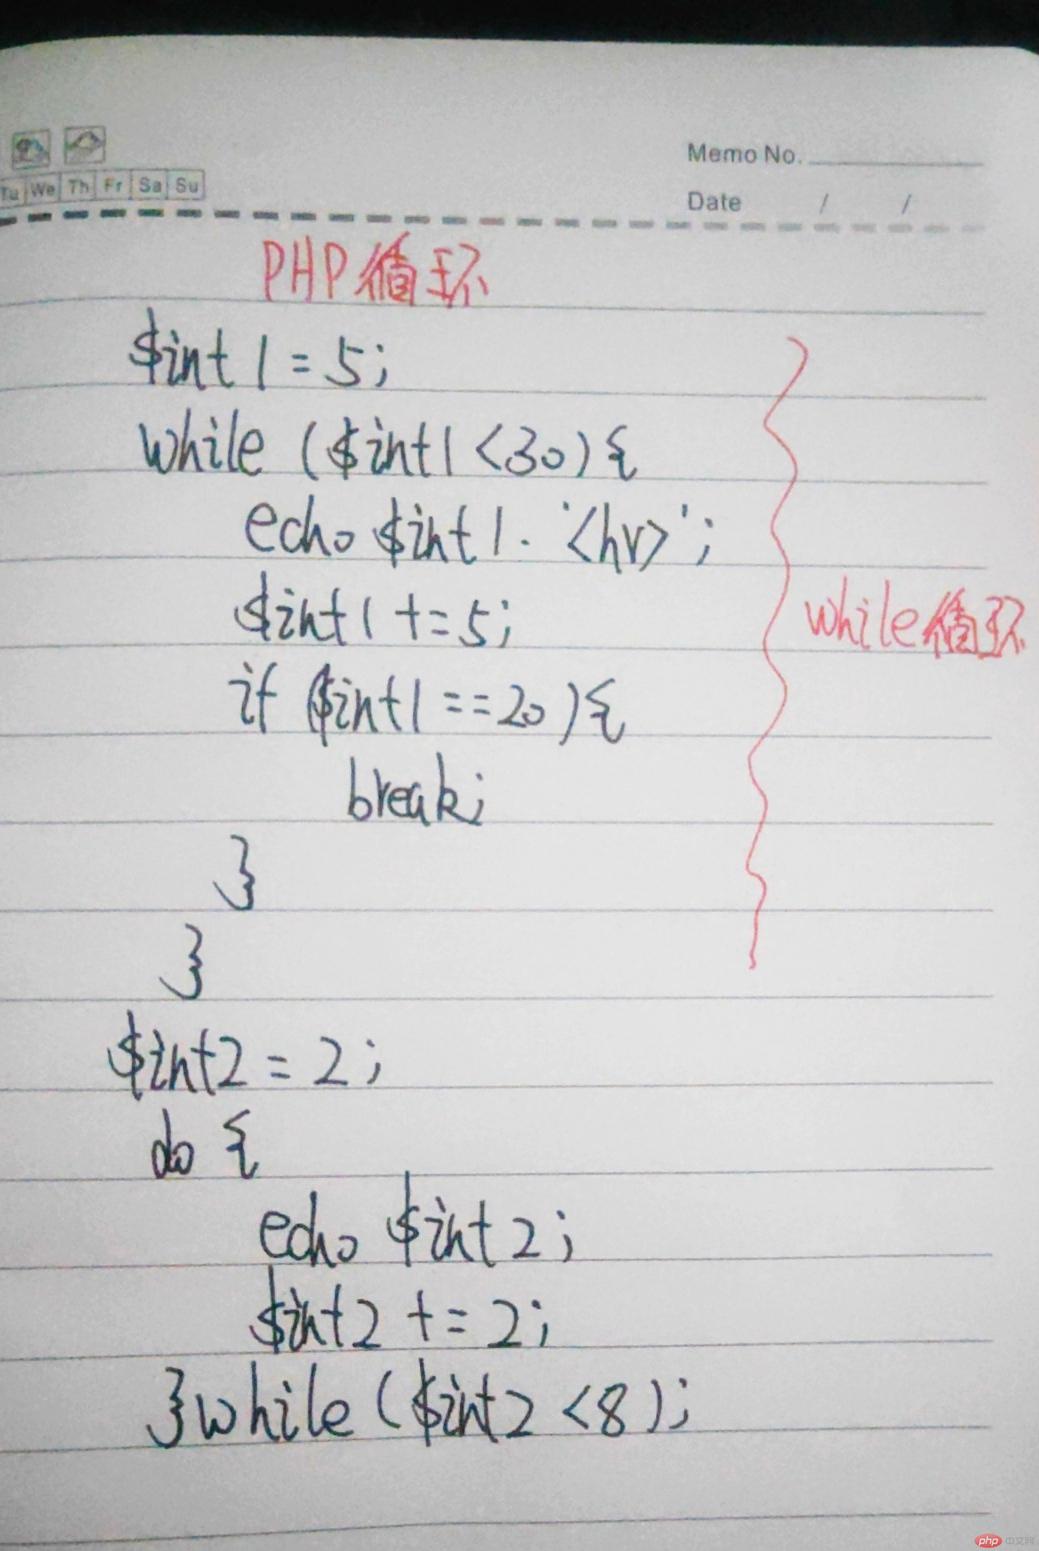 Memo No.
Tu We Th Fr Sa Su
Date / /
PHP循环
$int1 = 5;
while ($int1 <30){
echo $int1 . '<hr>';
$int1 += 5;
if ($int1 == 20){
break;
}
}
while循环
$int2 = 2;
do {
echo $int2;
$int2 += 2;
}while ($int2 <8);
php 中文网